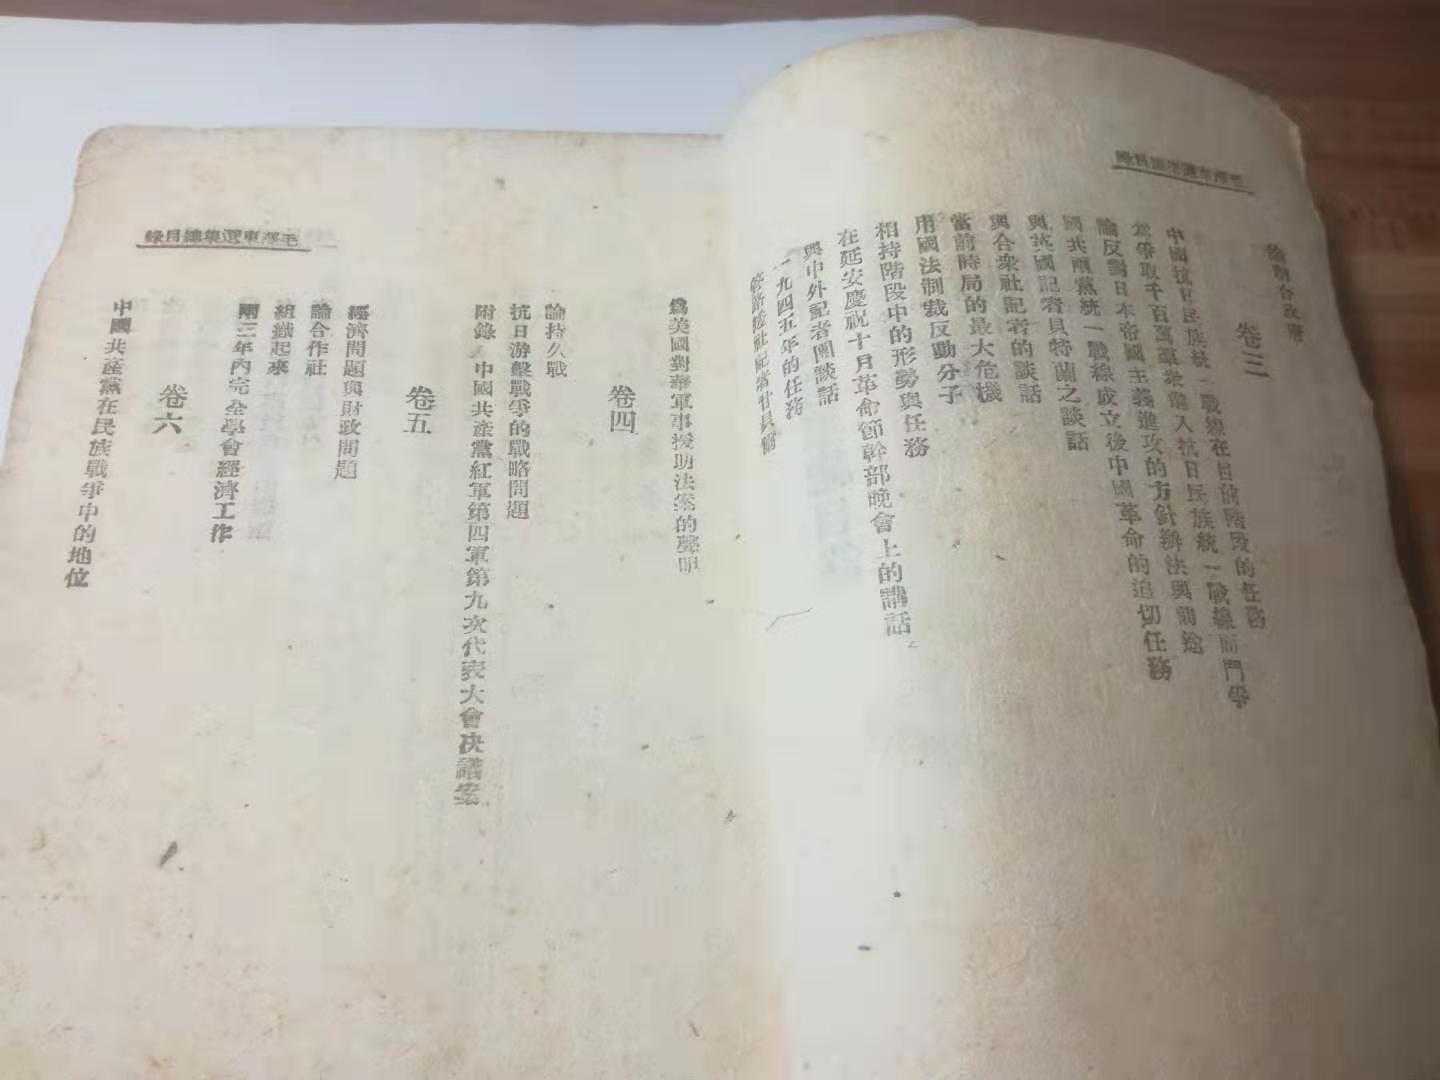 毛澤東選集總目錄
論聯合政府
卷三
中國抗日民族統一戰線在目前階段的任務
爲爭取千百萬羣衆進入抗日民族統一戰線而鬥爭
論反對日本帝國主義進攻的方針辦法與前途
國共兩黨統一戰線成立後中國革命的迫切任務
與英國記者貝特蘭之談話
與合衆社記者的談話
當前時局的最大危機
用國法制裁反動分子
相持階段中的形勢與任務
在延安慶祝十月革命節幹部晚會上的講話
與中外記者團談話
一九四五年的任務
答路透社記者甘貝爾
毛澤東選集總目錄
爲美國對華軍事援助法案的聲明
卷四
論持久戰
抗日游擊戰爭的戰略問題
附錄 中國共產黨紅軍第四軍第九次代表大會决議案
卷五
經濟問題與財政問題
論合作社
組織起來
兩三年內完全學會經濟工作
卷六
中國共產黨在民族戰爭中的地位